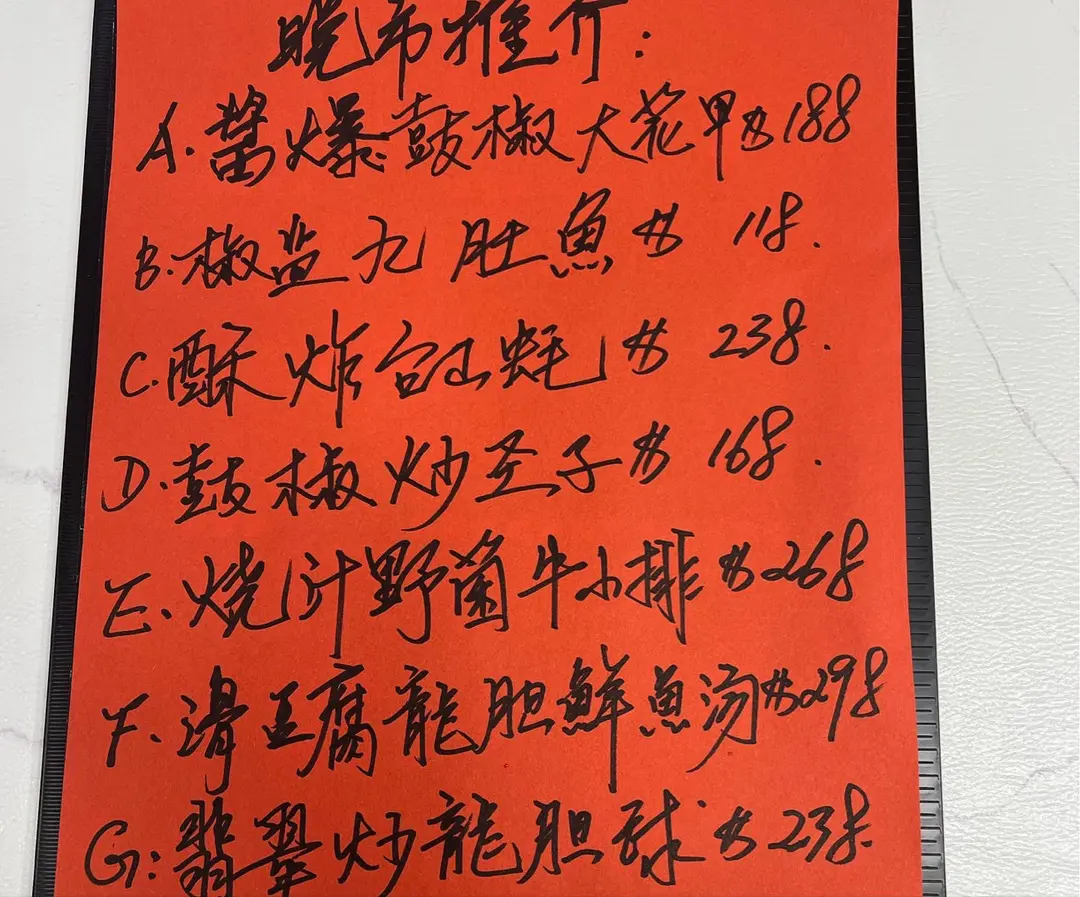 晚市推介:
A.酱爆鼓椒大花甲$188
B.椒盐九肚魚$ 118.
C.酥炸台山蚝$ 238.
D.鼓椒炒圣子$ 168.
E.烧汁野菌牛小排$268
F.滑豆腐龍胆鮮魚汤$298
G:翡翠炒龍胆球$238.